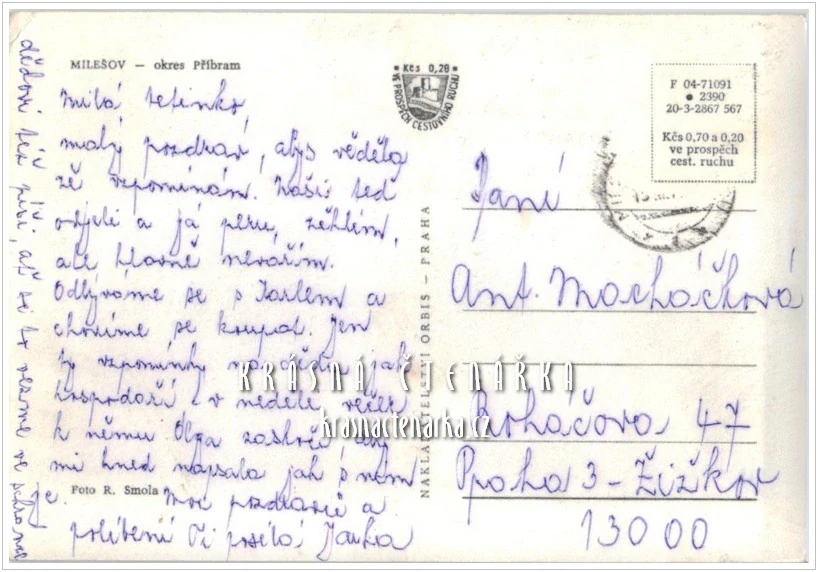 MILEŠOV — okres Příbram
Milá tetinko,
malý pozdrav, abys věděla
že vzpomínám. Naši teď
odjeli a já peru, žehlím,
ale hlavně nevařím.
Odbýváme se s Karlem a
chodíme se koupat. Jen
ty vzpomínky na dědu jak
hospodaří. V neděli večer
k němu Olga zaskočí aby
mi hned napsala jak s ním
je.
Foto R. Smola
Moc pozdravů a
políbení Ti posílá Jarka
dědovi též píši, ať si to vezme ve
Kčs 0,20
VE PROSPĚCH CESTOVNÍHO RUCHU
NAKLADATELSTVÍ ORBIS — PRAHA
F 04-71091
• 2390
20-3-2867 567
Kčs 0,70 a 0,20
ve prospěch
cest. ruchu
Paní
Ant. Macháčková
Roháčova 47
Praha 3 - Žižkov
13000
KRÁSNÁ ČTENÁŘKA
krasnactenarka.cz